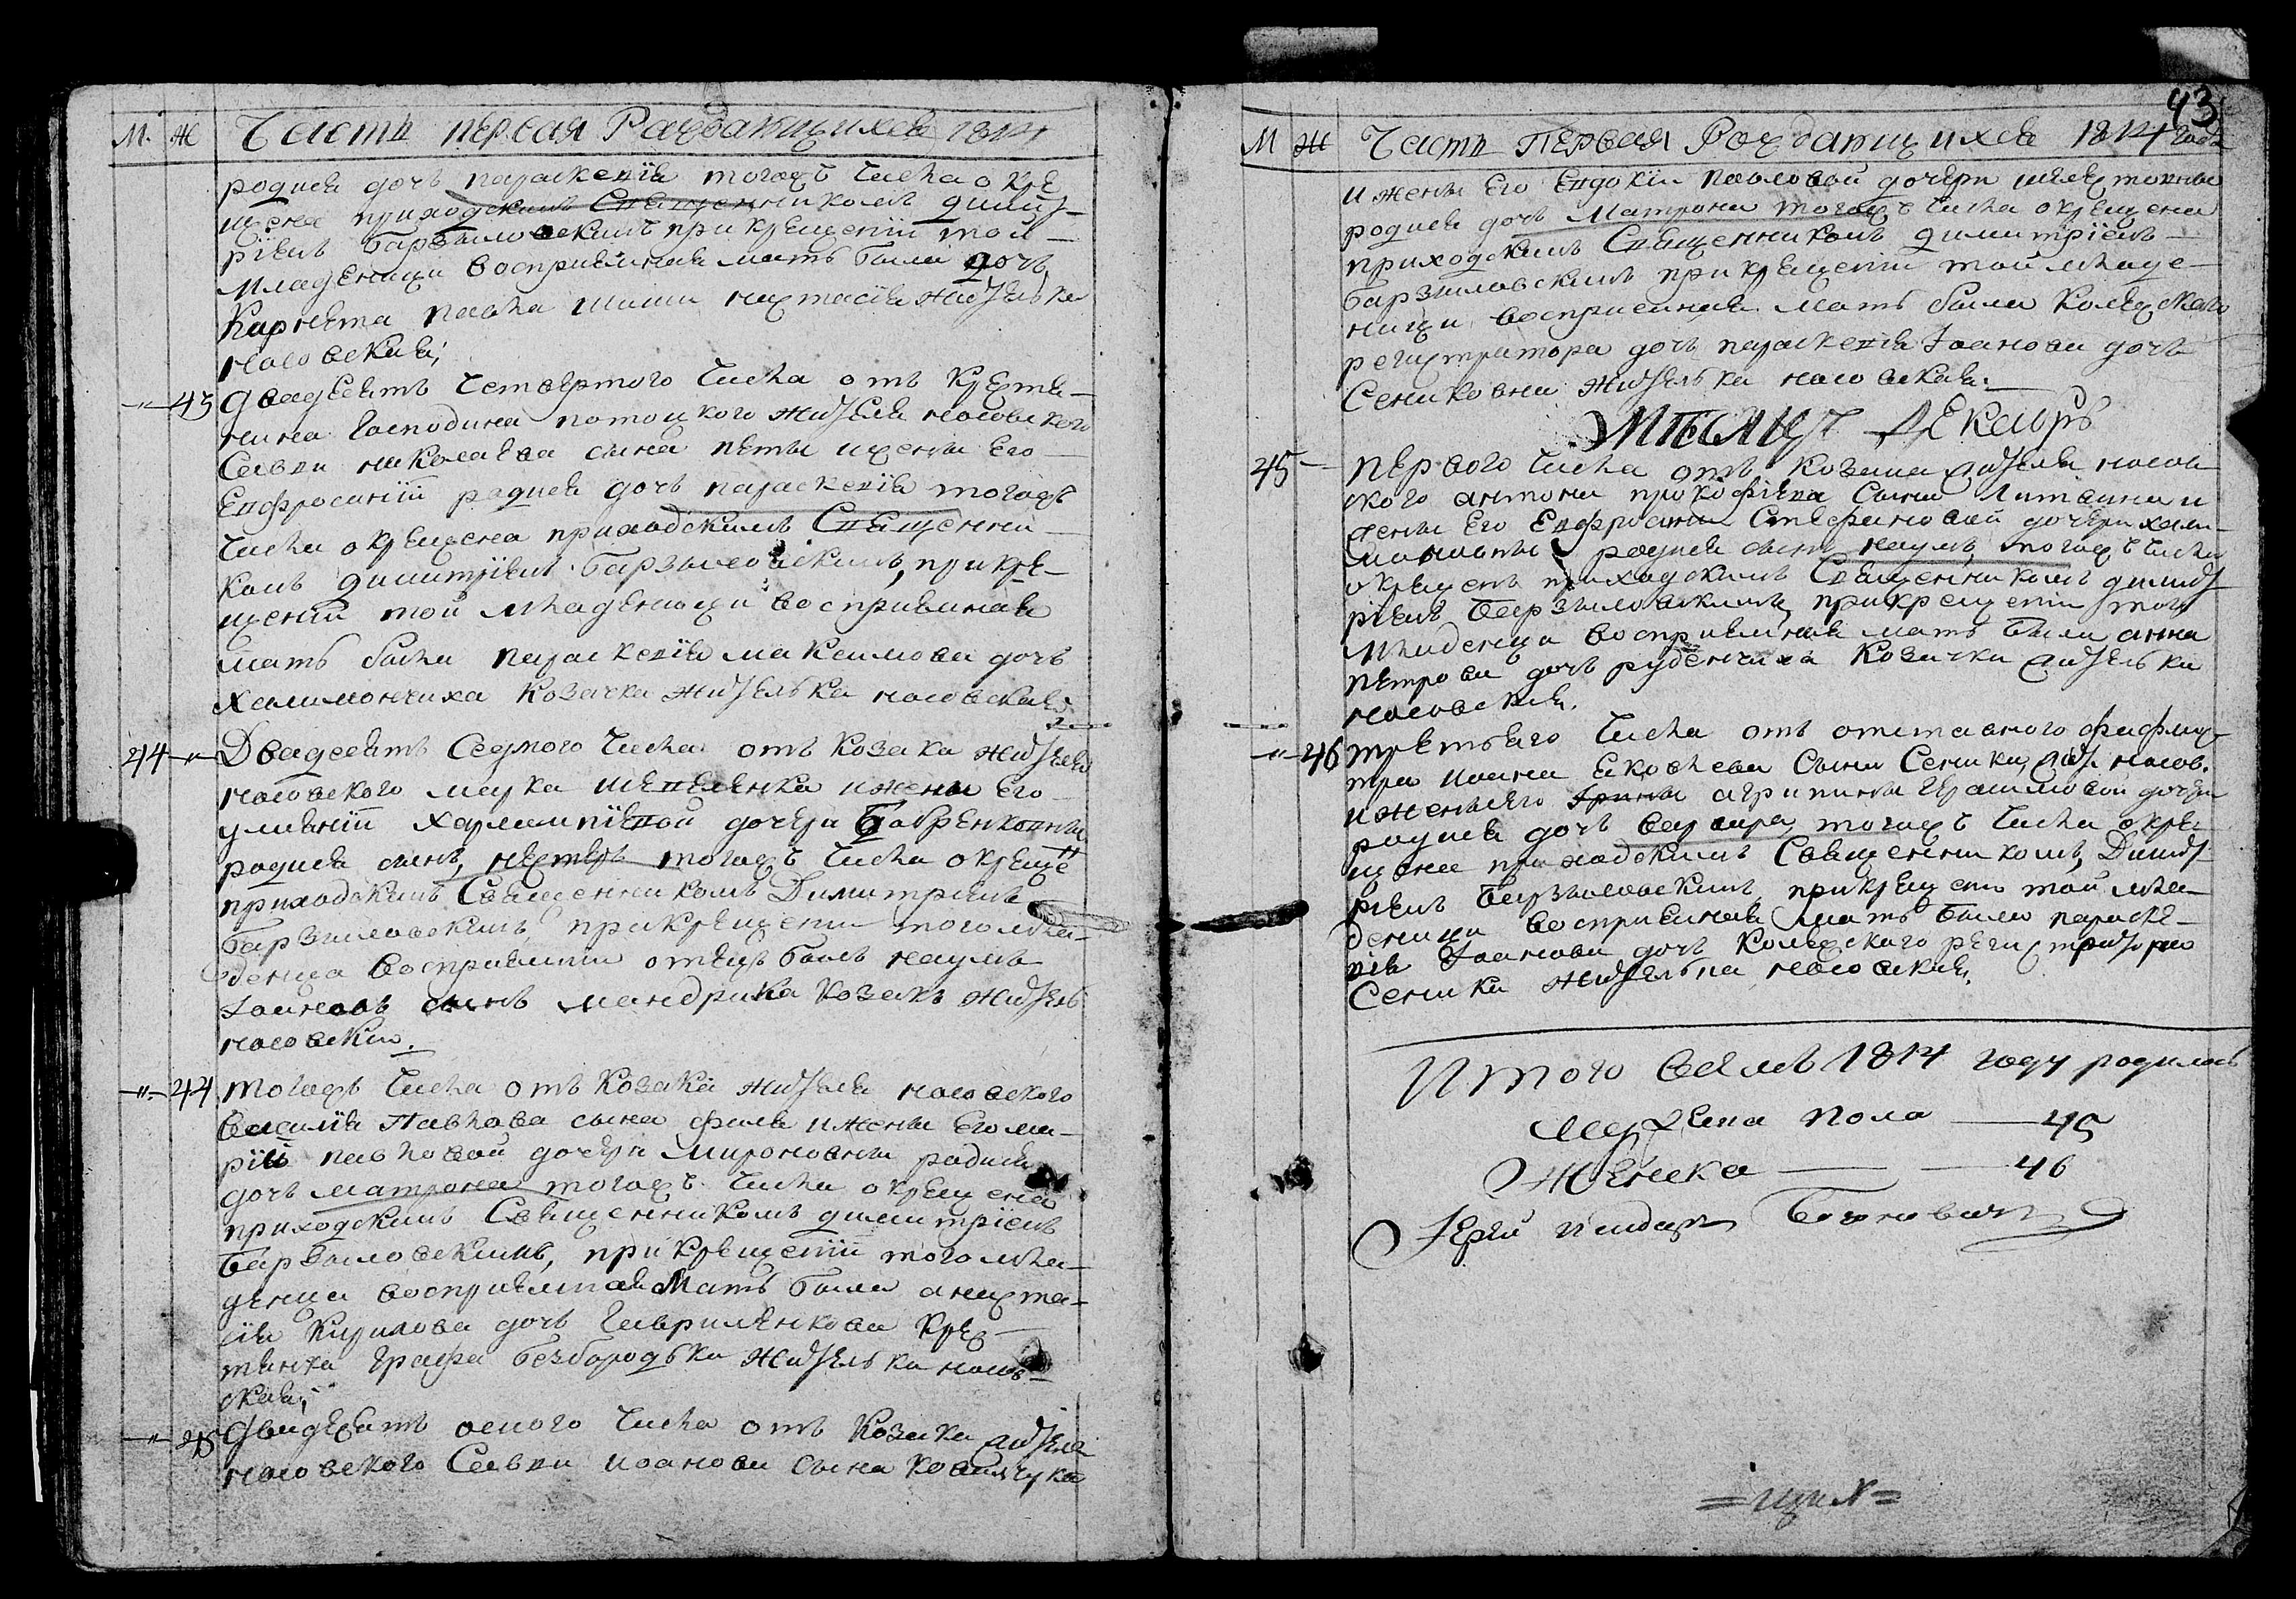 М. Ж Часть первая Раждающихся 1814
родися дочь параскевїя тогожъ числа окре
щена приходскимъ Священникомъ димит-
рїемъ барзиловскимъ при крещенїи той
младеницы воспрїемная мать была дочь
Корнета павла шиши настасїя жителька
носовская;
-"-43 двадесять четвертого числа отъ крестя-
нина господина потоцкого жителя носовского
Саввы николаева сына петы и жены его
Евфросинїи родися дочь параскевїя тогожъ
числа окрещена приходскимъ Священни-
комъ димитрїемъ барзиловскимъ, при кре-
щенїи той младеницы воспрїемная
мать была параскевїя максимова дочь
халимончиха козачка жителька носовская
44-"- Двадесять седмого числа отъ козака жителя
носовского марка шепеленка и жены его
улианїи харлампїевой дочери бобренковны
родися сынъ, нестеръ тогожъ числа окреще
приходскимъ Священникомъ Димитрїемъ
барзиловскимъ, при крещенїи того мла-
денца воспрїемный отецъ былъ наумъ
Іоанновъ сынъ мандрика козакъ житель
носовскїй.
-"-44 тогожъ числа отъ козака жителя носовского
василїя Павлова сына филя и жены его ма-
рїи павловой дочери мироновны родися
дочь матрона тогожъ числа окрещена
приходскимъ Священникомъ димитрїемъ
барзиловскимъ, при крещенїи того мла-
денца воспрїемная мать была анаста-
сїя Кирилова дочь гавриленкова крес-
тянка графа безбородька жителька носов-
ская;
-"-45 двадесять осмого числа отъ козака жителя
носовского Саввы иоанова сына ковальчука
43
М Ж Часть Первая Рождающихся 1814 года
и жены его Евдокїи павловой дочери
родися дочь Матрона тогожъ числа окрещена
приходскимъ Священникомъ димитрїемъ
барзиловскимъ при крещенїи той младе-
ницы воспрїемная мать была колежского
регистратора дочь параскевїя Іоанова дочь
Сениковна жителька носовская.
мѣсяцъ Декабрь
45- первого числа отъ козака жителя носов
ского антона прокофїева сына Литвина и
жены его Евфросинїи Стефановой дочери хали-
моновны родися сынъ наумъ, тогожъ числа
окрещенъ приходскимъ Священникомъ димит
рїемъ барзиловскимъ, при крещенїи того
младенца воспрїемная мать была анна
петрова дочь руденчиха козачка жителька
носовская.
-"-46 третьяго числа отъ отставного
иоана яковлева сына Сеника, жит. носов.
и жены его агрипины герасимовой дочери
родися дочь варвара, тогожъ числа окре
щена приходскимъ Священникомъ, Димит
рїемъ барзиловскимъ, при крещенїи той мла
деницы воспрїемная мать была параске-
вїя Іоанова дочь колежского регистратора
Сеника жителька носовская.
Итого всемъ 1814 году родилось
Мужеска пола 45
Женска 46
Іерей